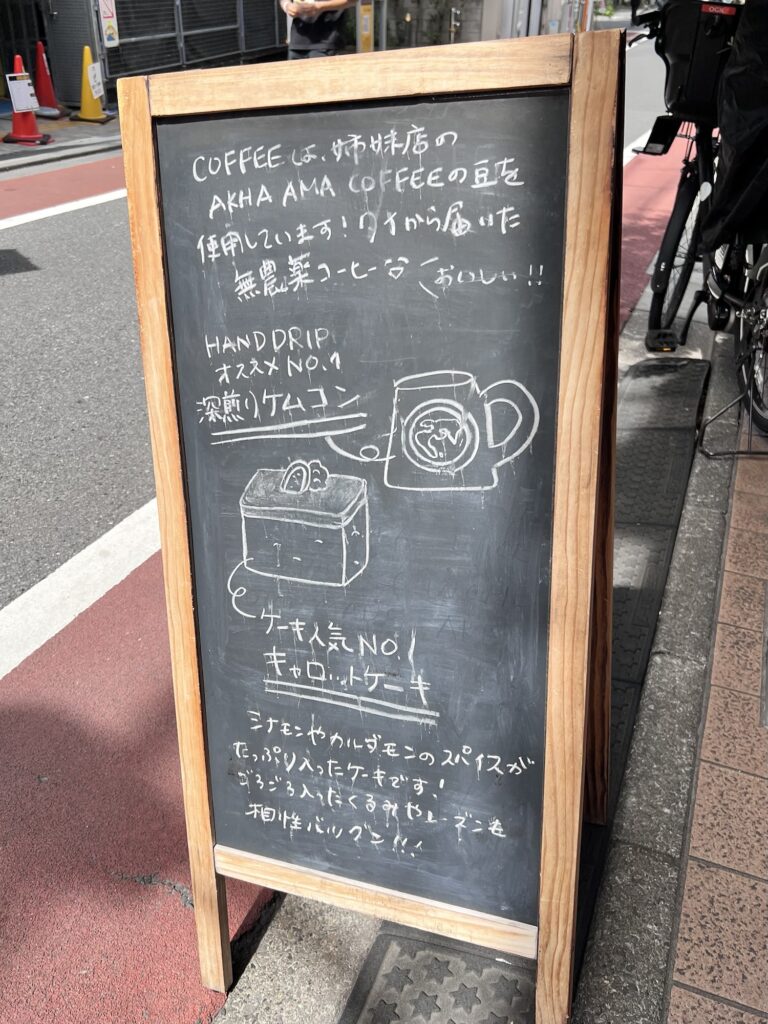 COFFEEは、姉妹店の
AKHA AMA COFFEEの豆を
使用しています！タイから届いた
無農薬コーヒー おいしい!!
HAND DRIP
オススメNO.1
深煎りケムコン
ケーキ人気NO.1
キャロットケーキ
シナモンやカルダモンのスパイスが
たっぷり入ったケーキです！
ごろごろ入ったくるみやレーズンも
相性バツグン!!!